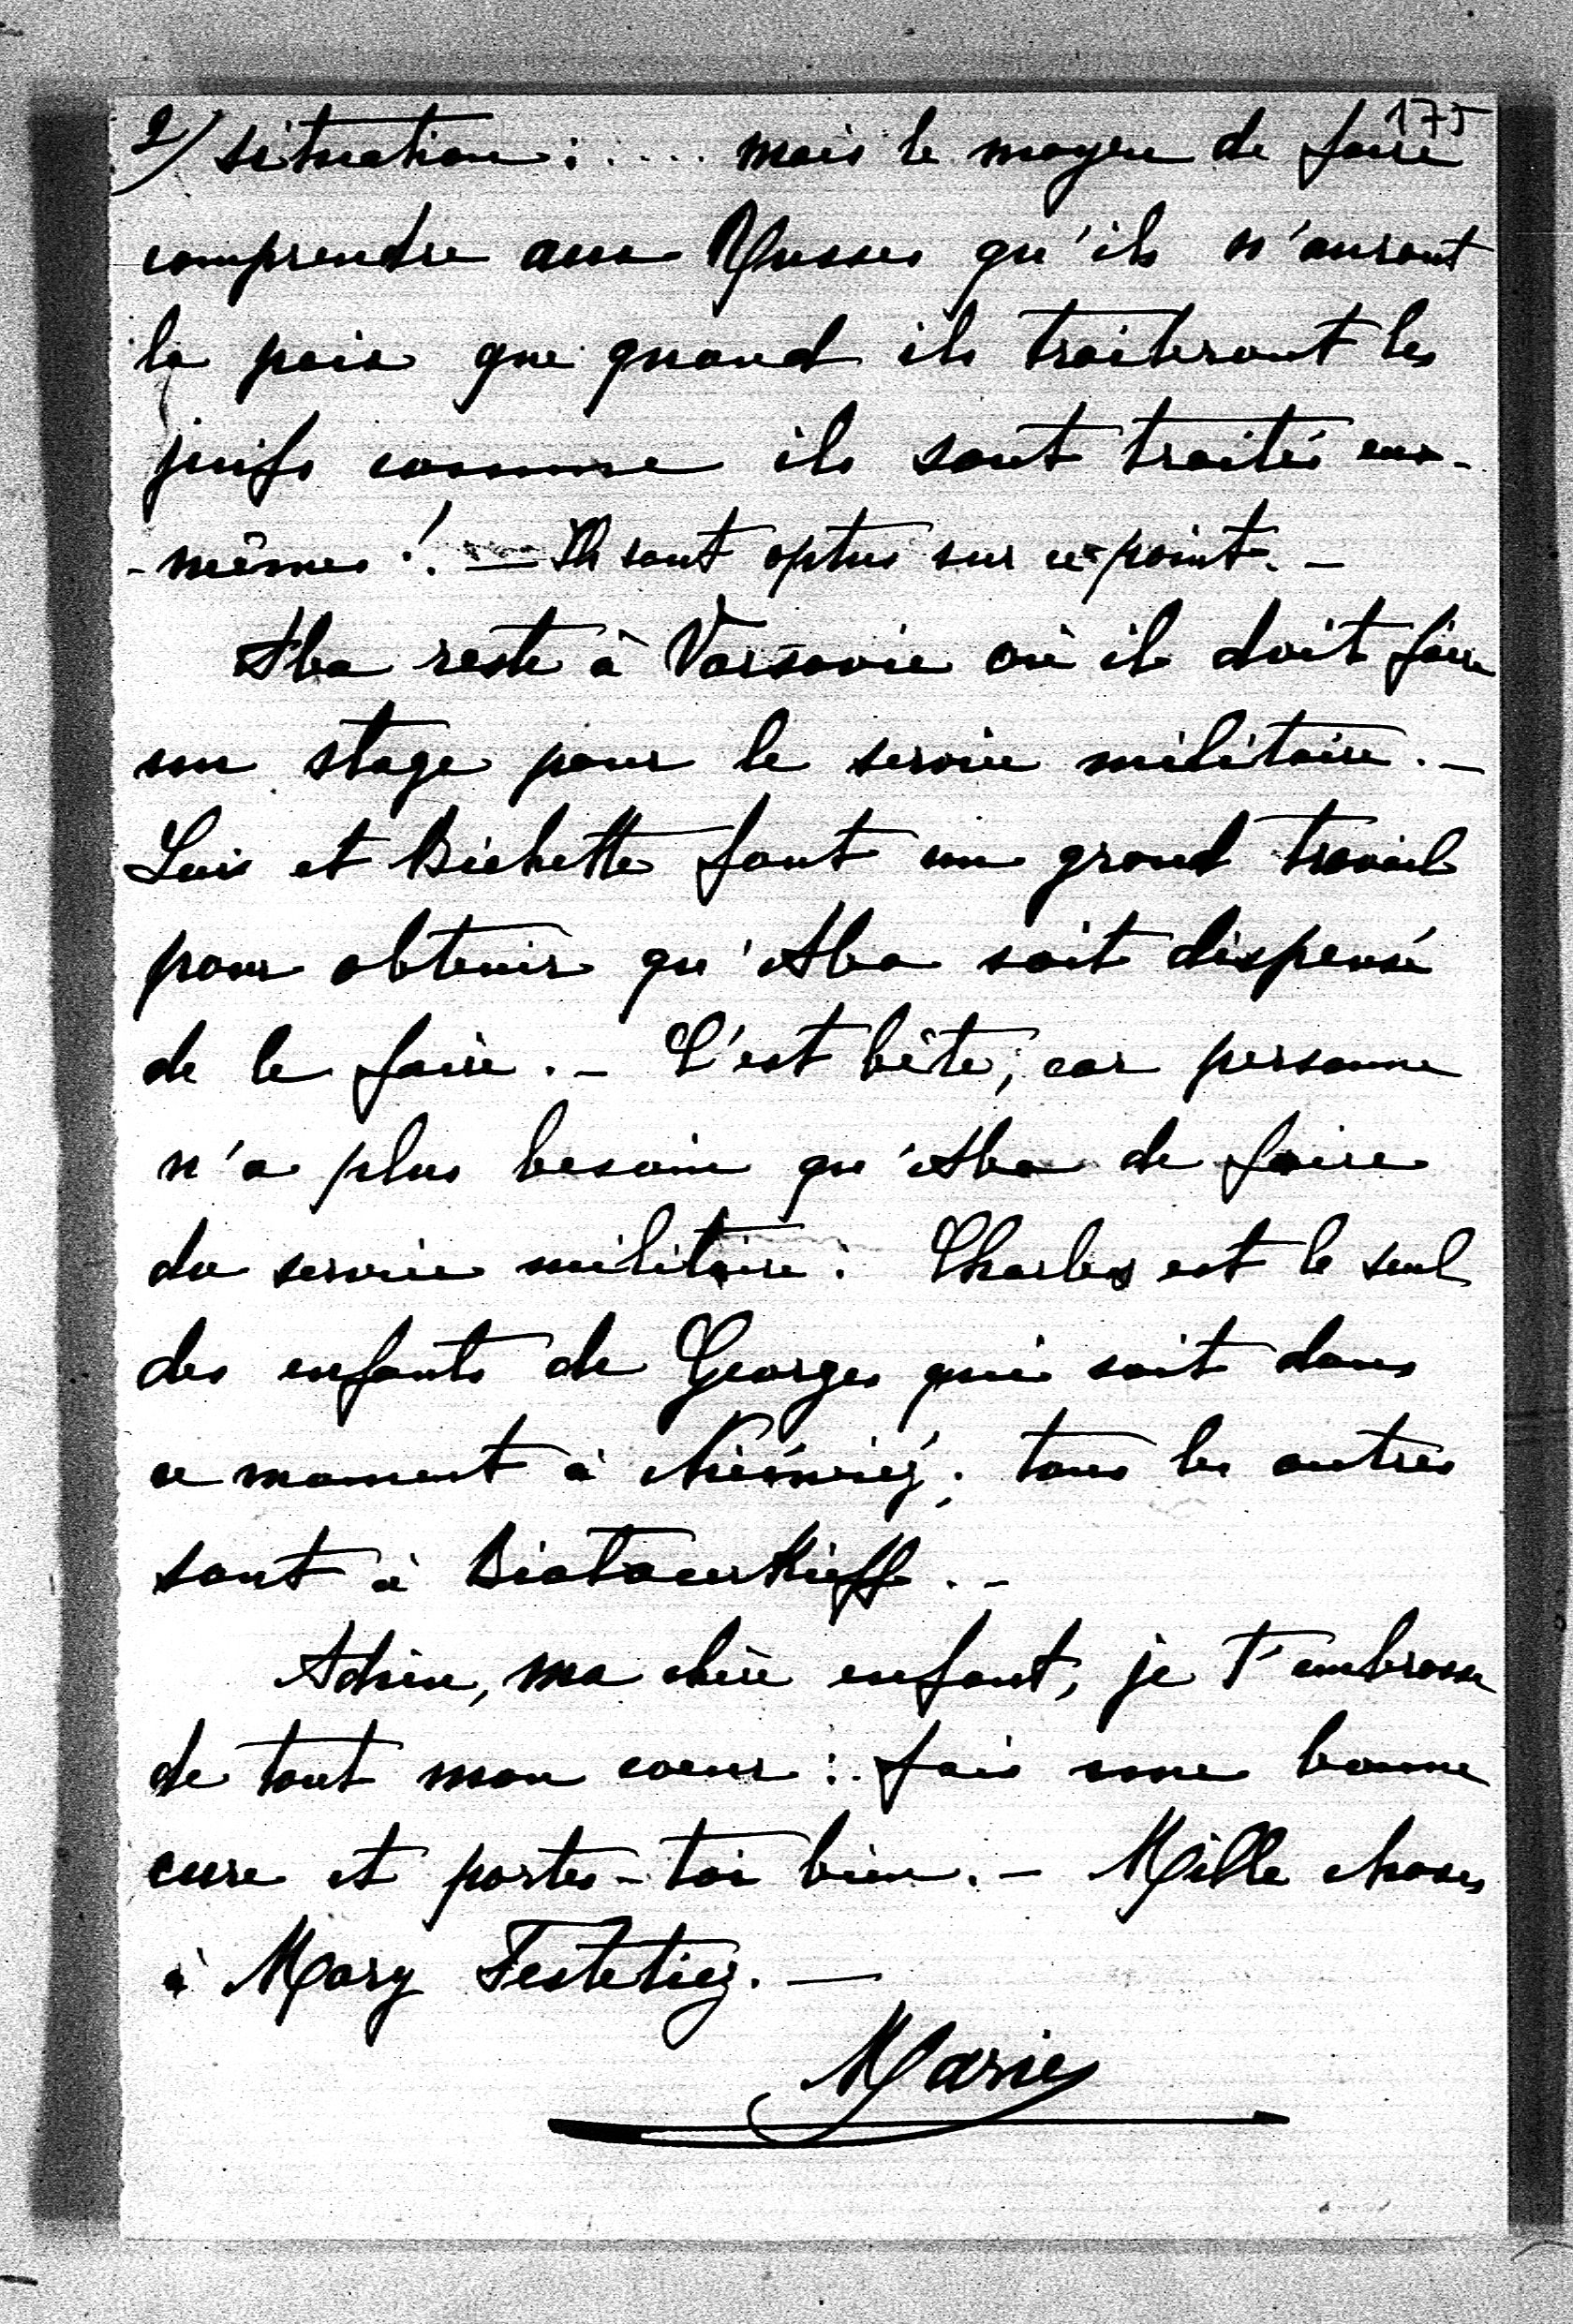 175
2/ situation : .... mais le moyen de faire
comprendre aux Russes qu'ils n'auront
la paix que quand ils traiteront les
juifs comme ils sont traités eux-
-mêmes ! — Ils sont obtus sur ce point. —
Aba reste à Varsovie où il doit faire
son stage pour le service militaire. —
Luis et Bichette font un grand travail
pour obtenir qu'Aba soit dispensé
de le faire. — C'est bête, car personne
n'a plus besoin qu'Aba de faire
du service militaire. Charles est le seul
des enfants de Georges qui soit dans
ce moment à Nieśwież; tous les autres
sont à
Adieu, ma chère enfant, je t'embrasse
de tout mon coeur : fais une bonne
cure et portes-toi bien. — Mille choses
à Mary Festeticz. —
Marie